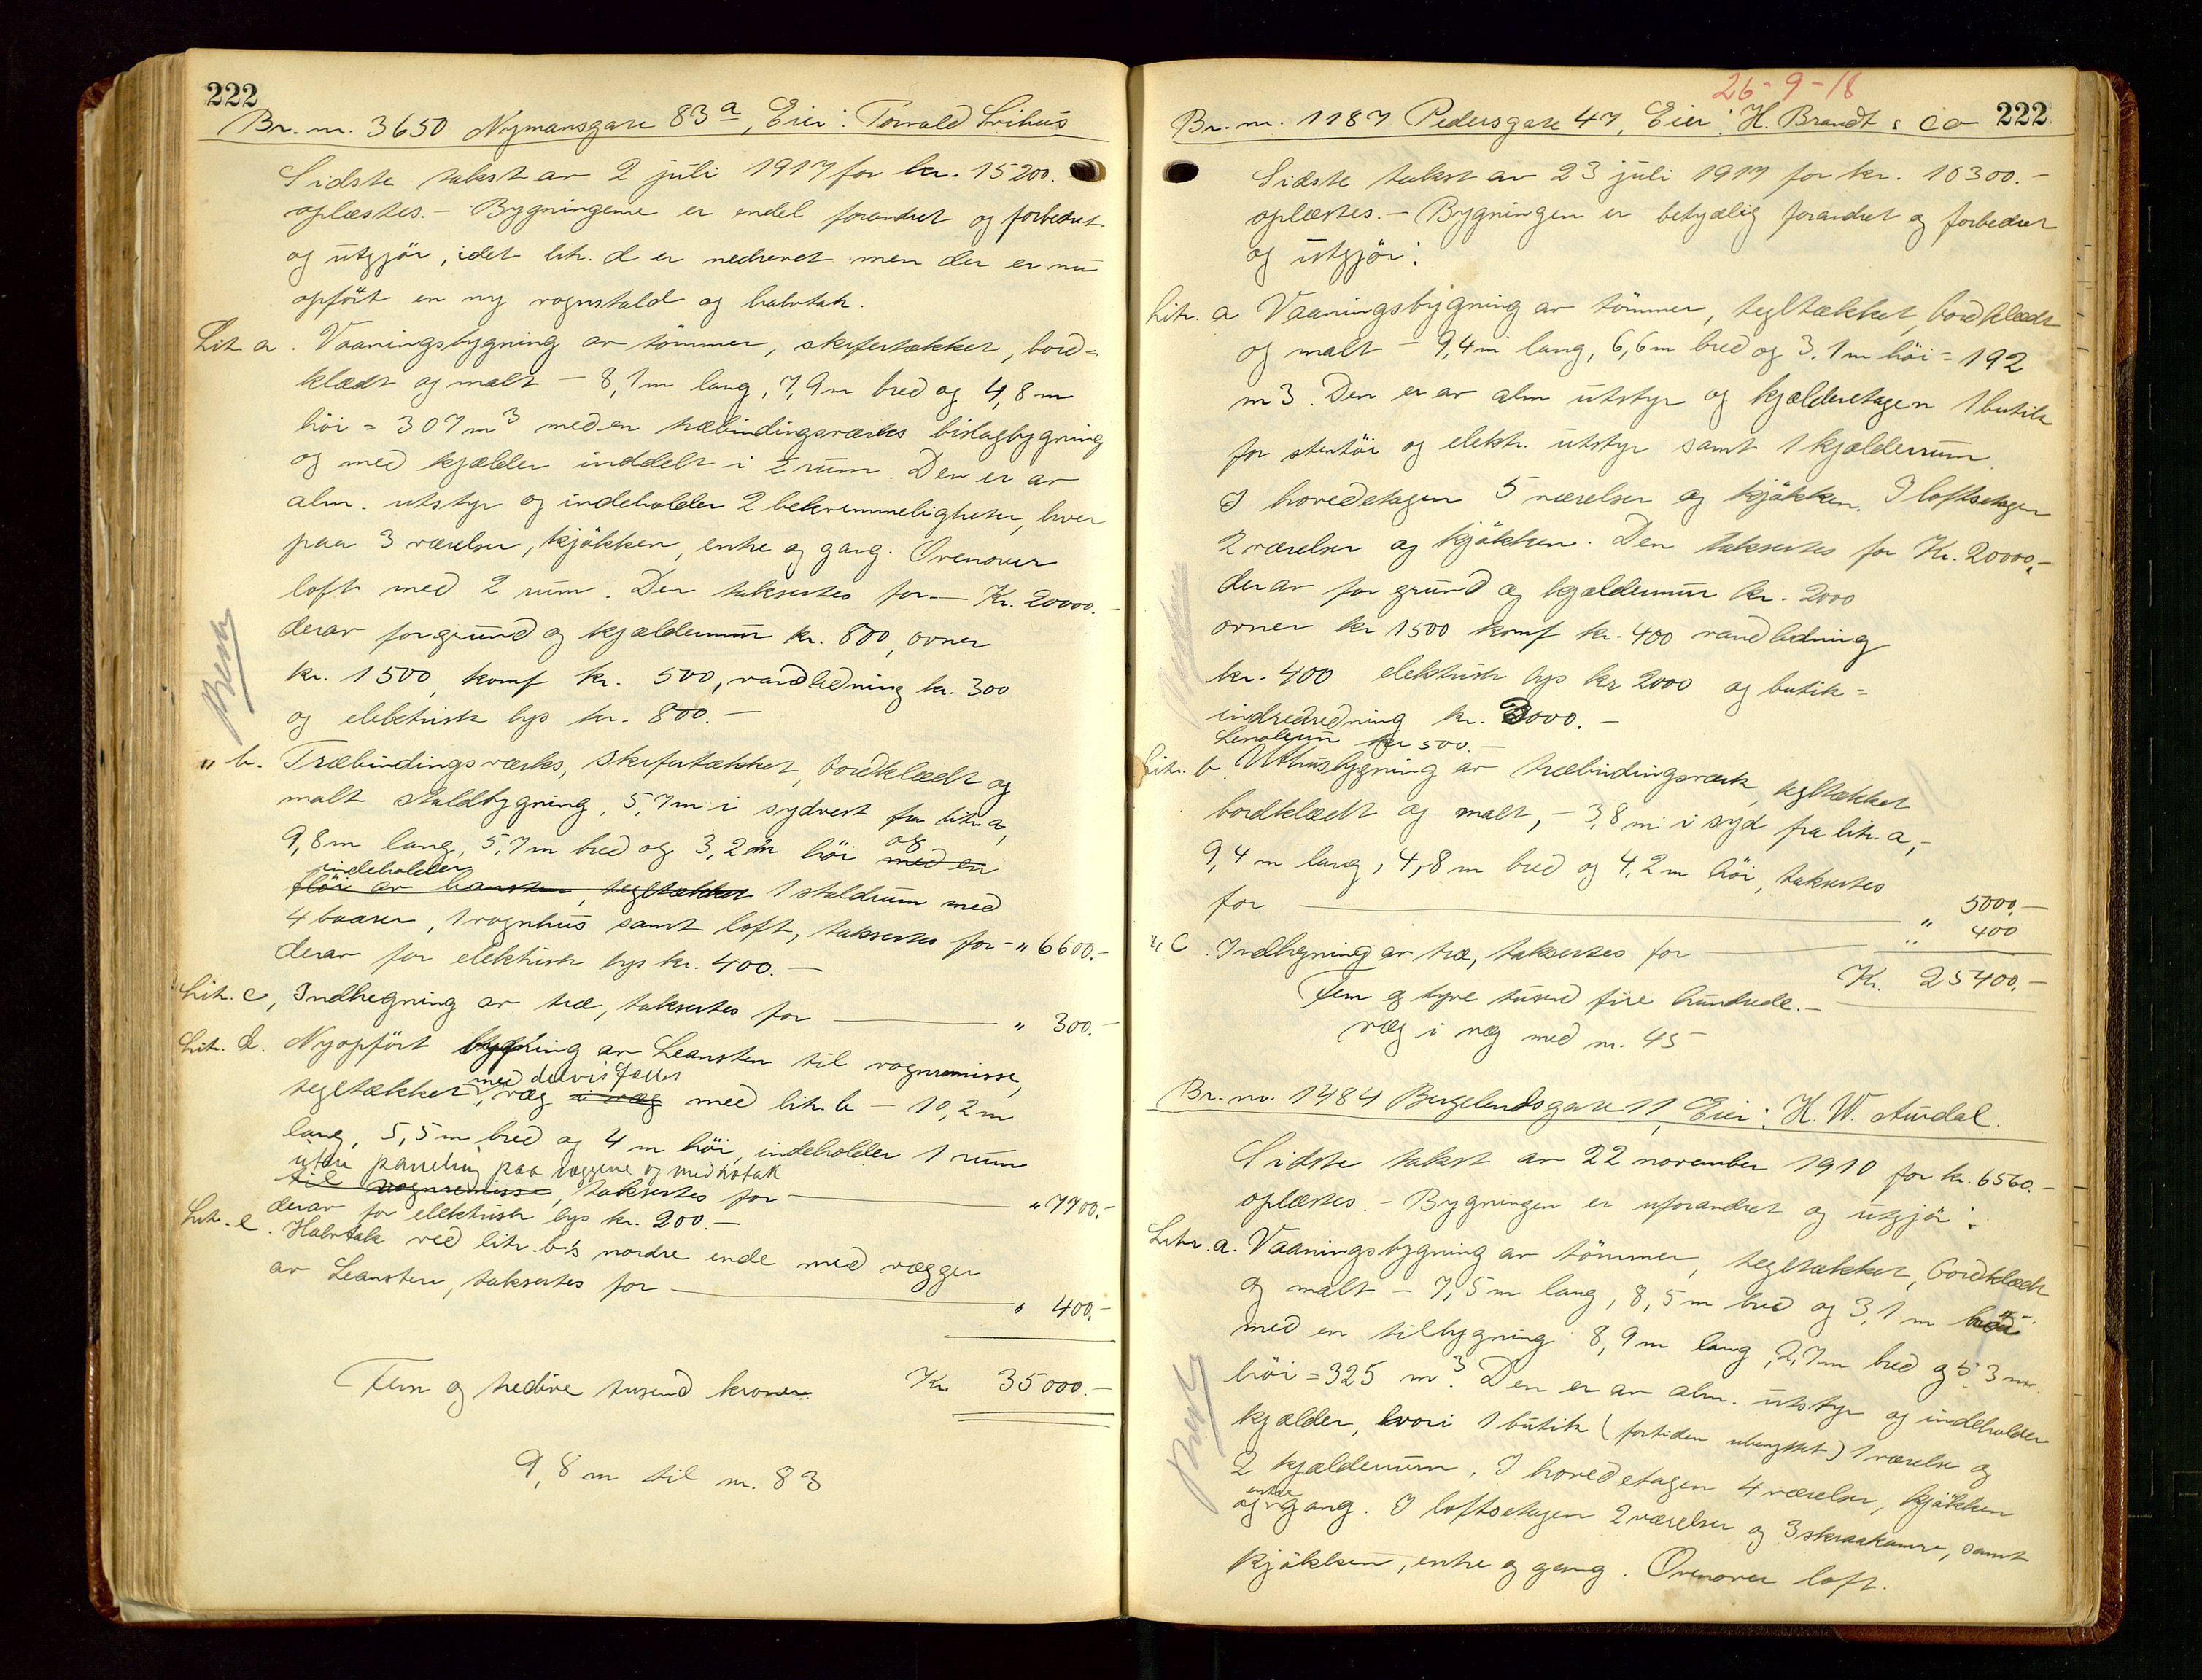 222
Br. nr. 3650 Nymansgate 83 a, Eier: Torvald Lihus
Sidste takst av 2 juli 1917 for kr. 15200.
oplæstes. - Bygningerne er endel forandret og forbedret
og utgjör, idet litr. d er nedrevet men der er nu
opfört en ny vognstald og halvtak.
Lit. a. Vaaningsbygning av tömmer, skifertækket, bord=
klædt og malt - 8,1 m lang, 7,9 m bred og 4,8 m
höi = 307 m3 med en træbindingsværks bislagbygning
og med kjælder inddelt i 2 rum. Den er av
alm. utstyr og indeholder 2 bekvemmeligheter, hver
paa 3 værelser, kjökken, entre og gang. Ovenover
loft med 2 rum. Den taksertes for - Kr. 20000.
derav for grund og kjældermur kr. 800, ovner
kr. 1500, komf kr. 500, vandledning kr. 300
og elektrisk lys kr. 800. -
" b. Træbindingsverks, skifertækket, bordklædt og
malt staldbygning, 5,7 m i sydvest fra litr a,
9,8 m lang, 5,7 m bred og 3,2 m höi og med en
indeholder
flöi av Leansten, tegltækket 1 staldrum med
4 baaser, 1 vognhus samt loft, taksertes for - " 6600.-
derav for elektrisk lys kr. 400. -
Litr. c, Indhegning av træ, taksertes for " 300.-
Litr. d. Nyopfört bygning av Leansten til vognremisse,
tegltækket, med delvis fælles væg i væg med litr. b - 10,2 m
lang, 5,5 m bred og 4 m höi, indeholder 1 rum
uten panneling paa væggene og med hvtak
til vognremisse, taksertes for " 7700.-
derav for elektrisk lys kr. 200. -
Litr. e. Halvtak ved litr. b's nordre ende med vægger
av Leansten, taksertes for " 400.-
Fem og tredive tusend kroner Kr. 35000.-
9,8 m til nr. 83
26-9-18
222
Br. nr. 1187 Pedersgate 47, Eier: H. Brandt & Co
Sidste takst av 23 juli 1917 for kr. 10300.-
oplæstes. - Bygningen er betydelig forandret og forbedret
og utgjör:
Litr. a Vaaningsbygning av tömmer, tegltækket, bordklædt
og malt - 9,4 m lang, 6,6 m bred og 3,1 m höi = 192
m3. Den er av alm utstyr og kjælderetagen 1 butik
for stentöi og elektr. utstyr samt 1 kjælderrum.
I hovedetagen 5 værelser og kjökken. I loftsetagen
2 værelser og kjökken. Den taksertes for Kr. 20000.-
derav for grund og kjældermur kr. 2000
ovner kr 1500 komf kr. 400 vandledning
kr. 400 elektrisk lys kr 2000 og butik=
indredredning kr. 3000. -
Linoleum kr 500. -
Litr. b. Uthusbygning av træbindingsverk, tegltækket
bordklædt og malt, - 3,8 m i syd fra litr. a, -
9,4 m lang, 4,8 m bred og 4,2 m höi, taksertes
for " 5000.-
" c. Indhegning av træ, taksertes for " 400
Kr. 25400.-
Fem og tyve tusend fire hundrede. -
væg i væg med nr. 45
Br. nr. 1484 Bergelandsgate 11, Eier: H. W. Aurdal.
Sidste takst av 22 november 1910 for kr. 6560.-
oplæstes. - Bygningen er uforandret og utgjör:
Litr. a. Vaaningsbygning av tömmer, tegltækket, bordklædt
og malt - 7,5 m lang, 8,5 m bred og 3,1 m höi
med en tilbygning 8,9 m lang, 2,7 m bred og 5,3 m.
höi = 325 m3. Den er av alm. utstyr og indeholder
kjælder, hvori 1 butik (fortiden ubenyttet) 1 værelse og
2 kjælderrum. I hovedetagen 4 værelser, kjökken
entre
og gang. I loftsetagen 2 værelser og 3 skraakamre, samt
kjökken, entre og gang. Ovenover loft.